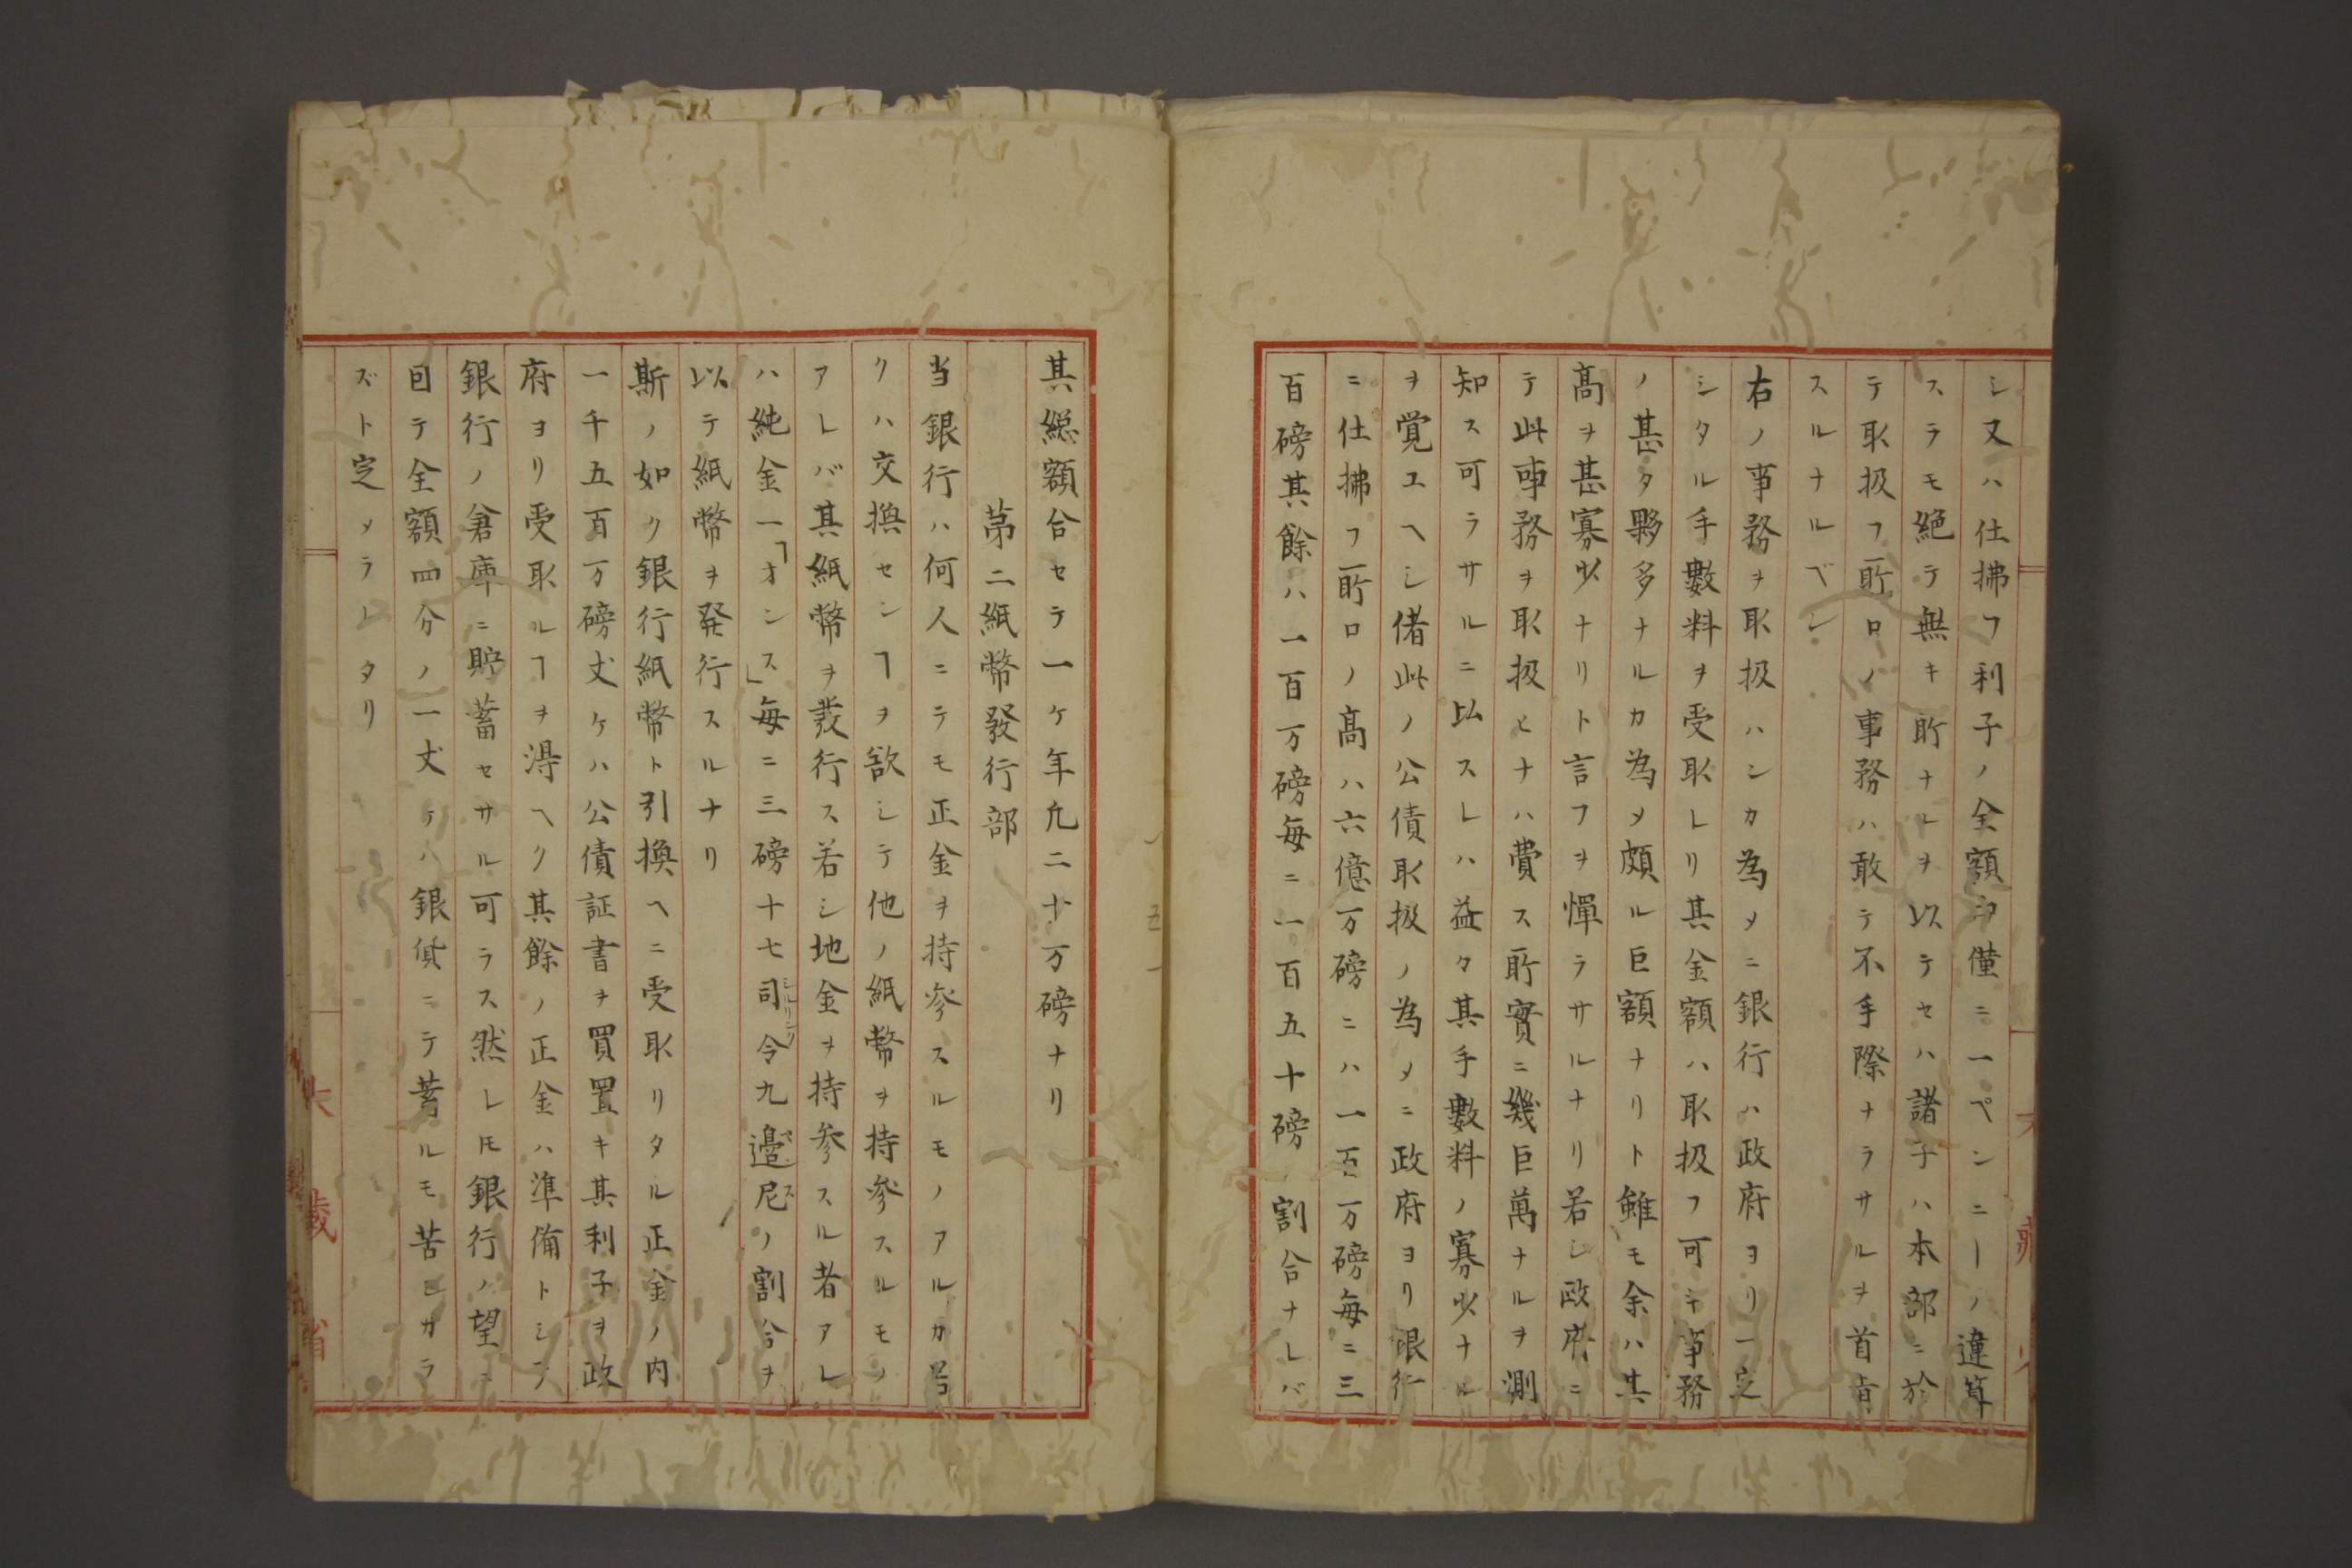 シ又ハ仕拂フ利子ノ全額ヲ僅ニ一ペンニーノ違算
スラモ絶テ無キ所ナルヲ以テセハ諸子ハ本部ニ於
テ取扱フ所ロノ事務ハ敢テ不手際ナラサルヲ首肯
スルナルベシ
右ノ事務ヲ取扱ハンカ為メニ銀行ハ政府ヨリ一定
シタル手數料ヲ受取レリ其金額ハ取扱フ可キ事務
ノ甚タ夥多ナルカ為メ頗ル巨額ナリト雖モ余ハ其
高ヲ甚寡少ナリト言フヲ憚ラサルナリ若シ政府ニ
テ此事務ヲ取扱ヒナハ費ス所實ニ幾巨萬ナルヲ測
知ス可ラサルニ以スレハ益々其手數料ノ寡少ナル
ヲ覚ユヘシ偖此ノ公債取扱ノ為メニ政府ヨリ銀行
ニ仕拂フ所ロノ高ハ六億万磅ニハ一百万磅毎ニ三
百磅其餘ハ一百万磅毎ニ一百五十磅ノ割合ナレバ
其総額合セテ一ケ年凢二十万磅ナリ
第二紙幣發行部
当銀行ハ何人ニテモ正金ヲ持參スルモノアルカ若
クハ交換センヿヲ欲シテ他ノ紙幣ヲ持參スルモノ
アレバ其紙幣ヲ發行ス若シ地金ヲ持参スル者アレ
ハ純金一「オンス」毎ニ三磅十七司令九邉尼ノ割合ヲ
シルリング
ペンス
以テ紙幣ヲ発行スルナリ
斯ノ如ク銀行紙幣ト引換ヘニ受取リタル正金ノ内
一千五百万磅丈ケハ公債証書ヲ買置キ其利子ヲ政
府ヨリ受取ルヿヲ得ヘク其餘ノ正金ハ準備トシテ
銀行ノ倉庫ニ貯蓄セサル可ラス然レ𪜈銀行ノ望ニ
因テ全額四分ノ一丈ケハ銀貨ニテ蓄ルモ苦シカラ
ズト定メラレタリ
大藏省